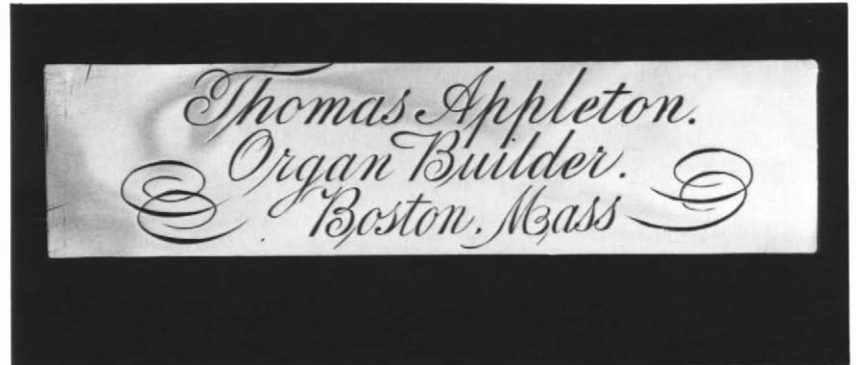 Thomas Appleton.
Organ Builder.
Boston. Mass